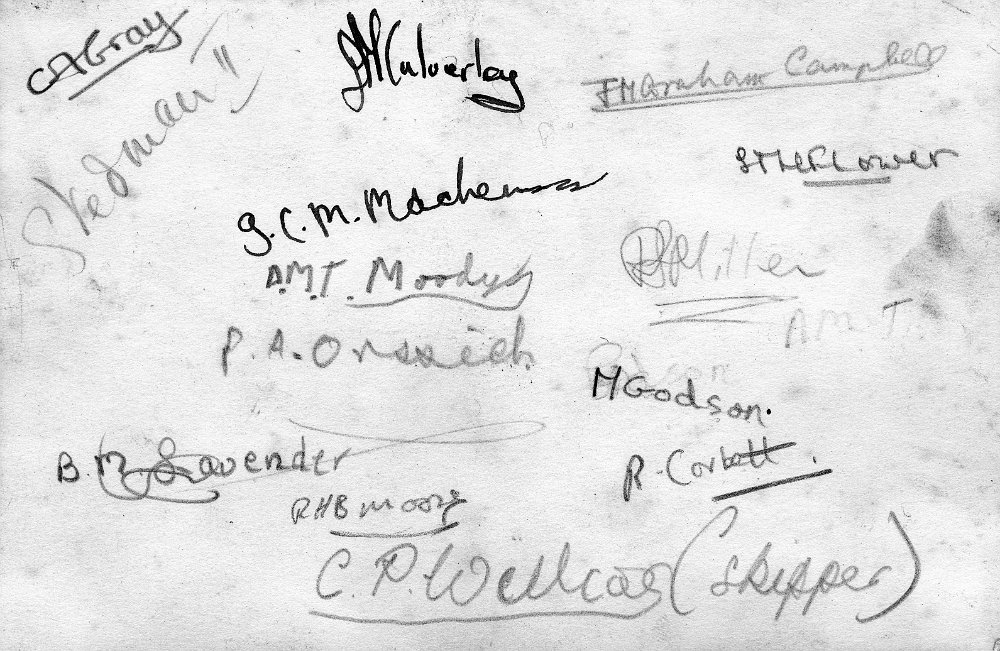 C A Gray
Calverley
J M Graham Campbell
Stedman"
S T H Flower
G. C. M. Machen
A.M.T. Moody
Miller
A M. T
P. A. Orssich
M Godson.
B. M. Lavender
R. Corbett.
R H B Moore
C. P. (Skipper)